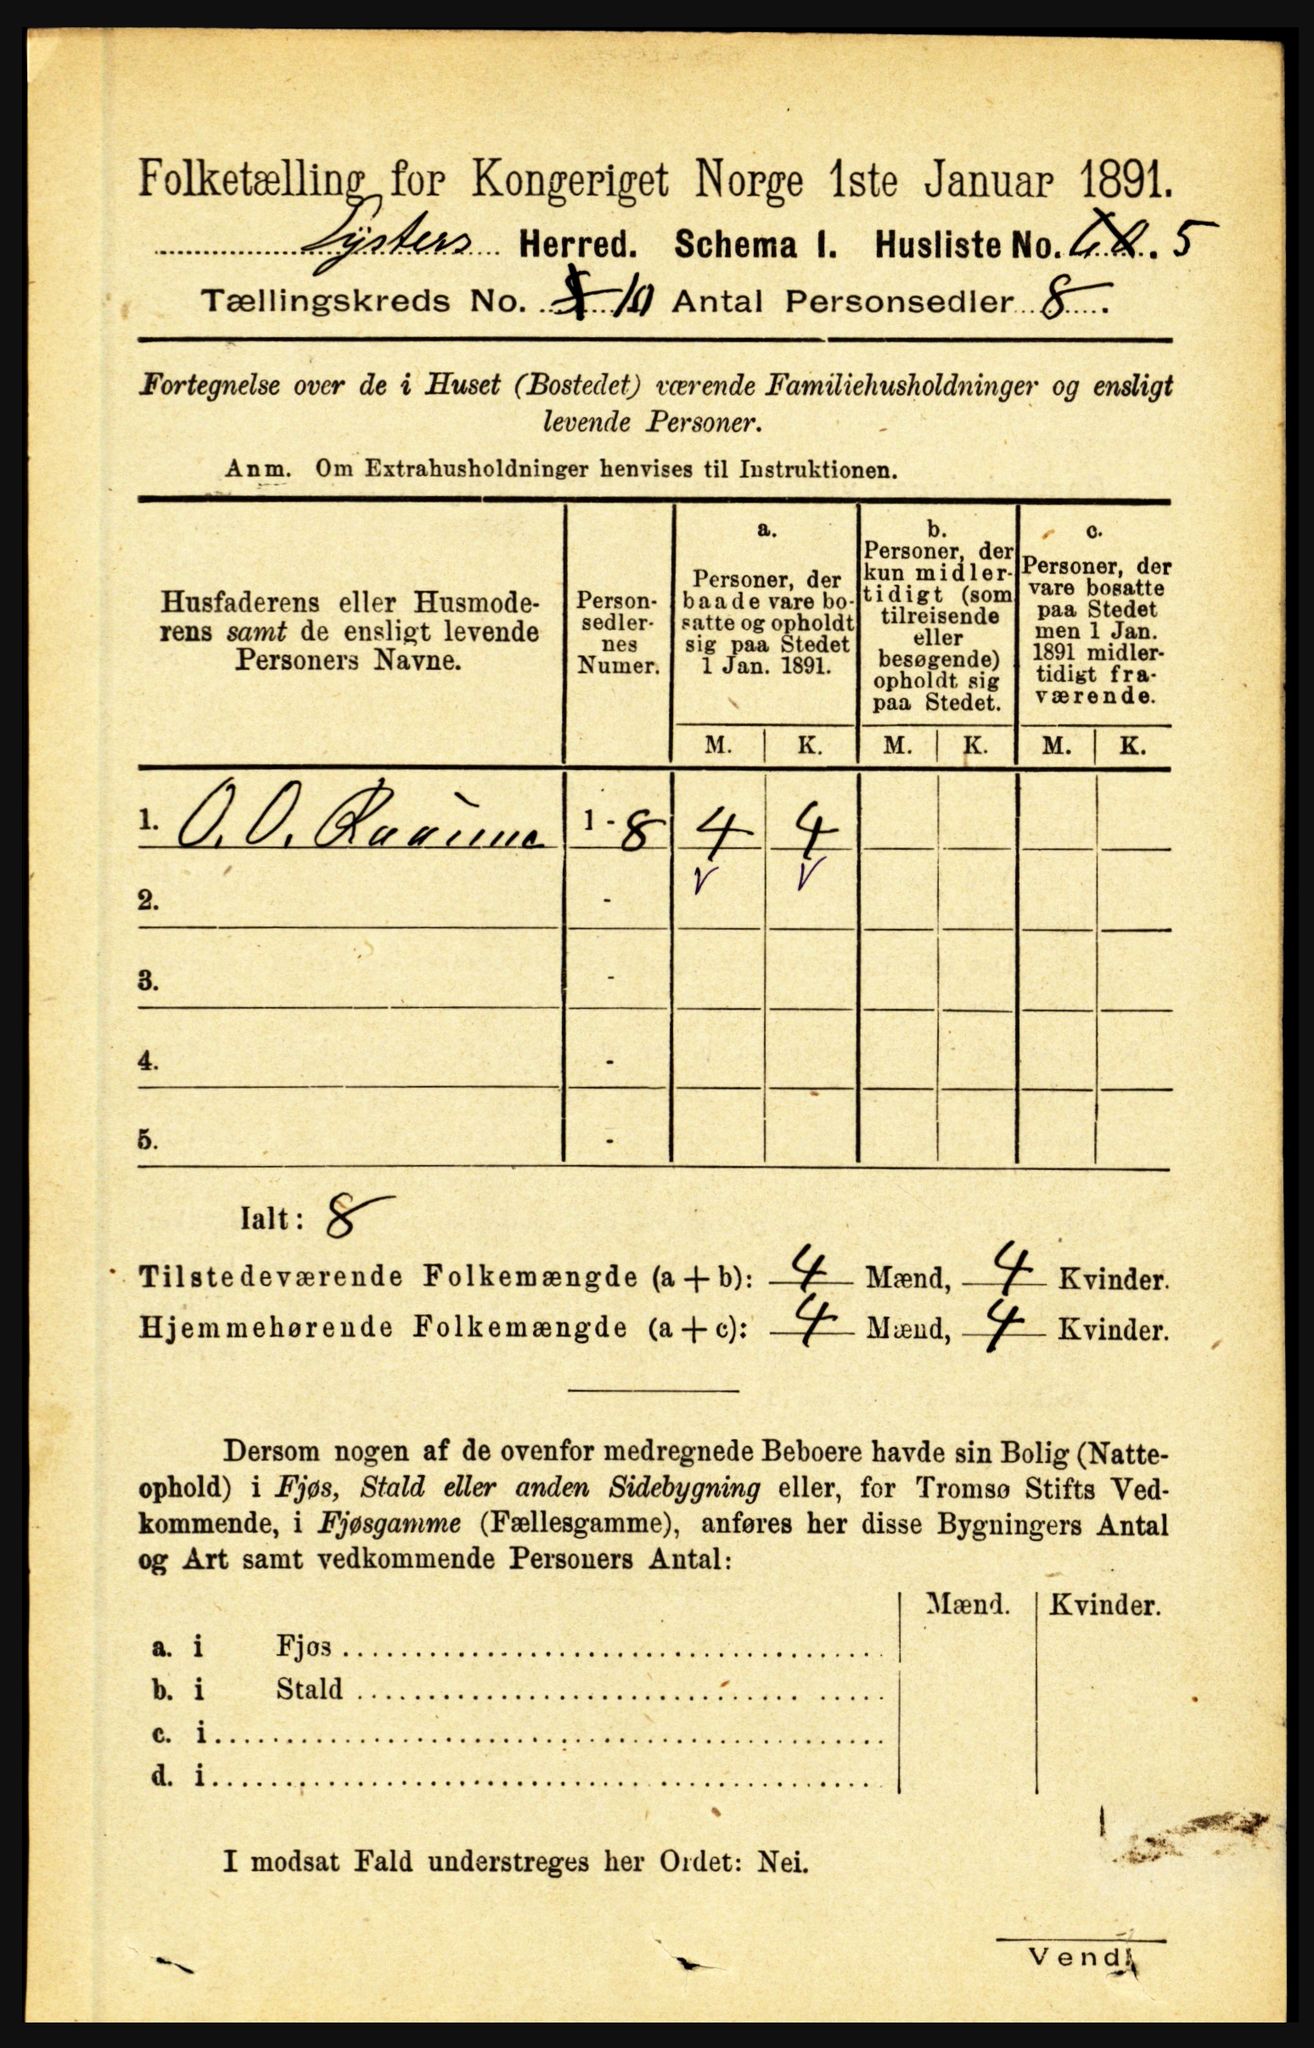 Folketælling for Kongeriget Norge 1ste Januar 1891.
Lysters Herred. Schema I. Husliste No. 5
Tællingskreds No. 10 Antal Personsedler 8.
Fortegnelse over de i Huset (Bostedet) værende Familiehusholdninger og ensligt
levende Personer.
Anm. Om Extrahusholdninger henvises til Instruktionen.
Husfaderens eller Husmode-
rens samt de ensligt levende
Personers Navne.
Person-
sedler-
nes
Numer.
a.
Personer, der
baade vare bo-
satte og opholdt
sig paa Stedet
1 Jan. 1891.
b.
Personer, der
kun midler-
tidigt (som
tilreisende
eller
besøgende)
opholdt sig
paa Stedet.
c.
Personer, der
vare bosatte
paa Stedet
men 1 Jan.
1891 midler-
tidigt fra-
værende.
M. K. M. K. M. K.
1. O. O. 1 - 8 4 4
2. -
3. -
4. -
5. -
Ialt: 8
Tilstedeværende Folkemængde (a + b): 4 Mænd, 4 Kvinder.
Hjemmehørende Folkemængde (a + c): 4 Mænd, 4 Kvinder.
Dersom nogen af de ovenfor medregnede Beboere havde sin Bolig (Natte-
ophold) i Fjøs, Stald eller anden Sidebygning eller, for Tromsø Stifts Ved-
kommende, i Fjøsgamme (Fællesgamme), anføres her disse Bygningers Antal
og Art samt vedkommende Personers Antal:
Mænd. Kvinder.
a. i Fjøs
b. i Stald
c. i
d. i
I modsat Fald understreges her Ordet: Nei.
Vend!